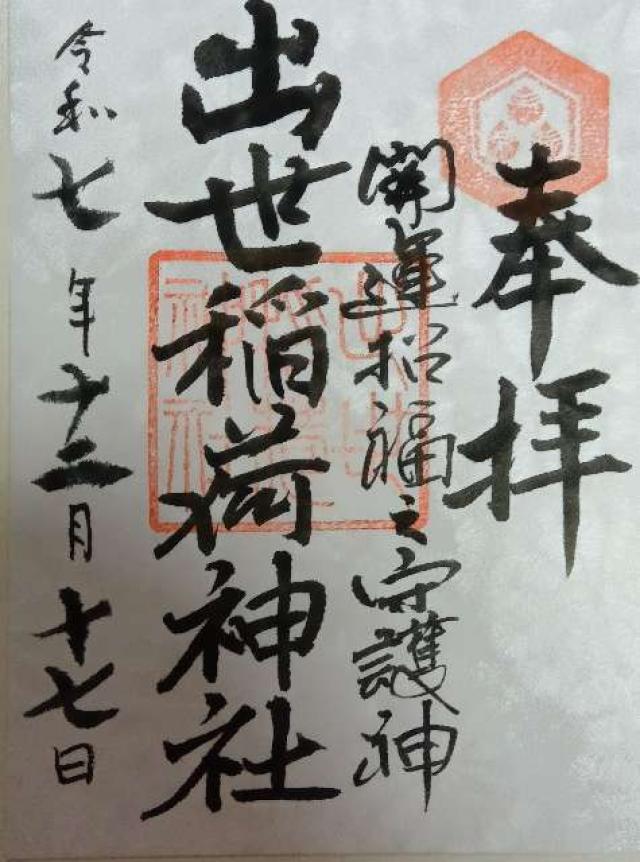 奉拝
開運招福之守護神
出世稲荷神社
令和七年十二月十七日